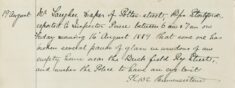 17 August Mr Laugher Draper of Potter Street, Bps Stortford,
reported to Inspector between 6 am & 7 am on
Friday morning 16 August 1889 that some one has
broken several panes of glass in windows of an
empty house near the Duck field Rye Street,
and wishes the Police to have an eye to it